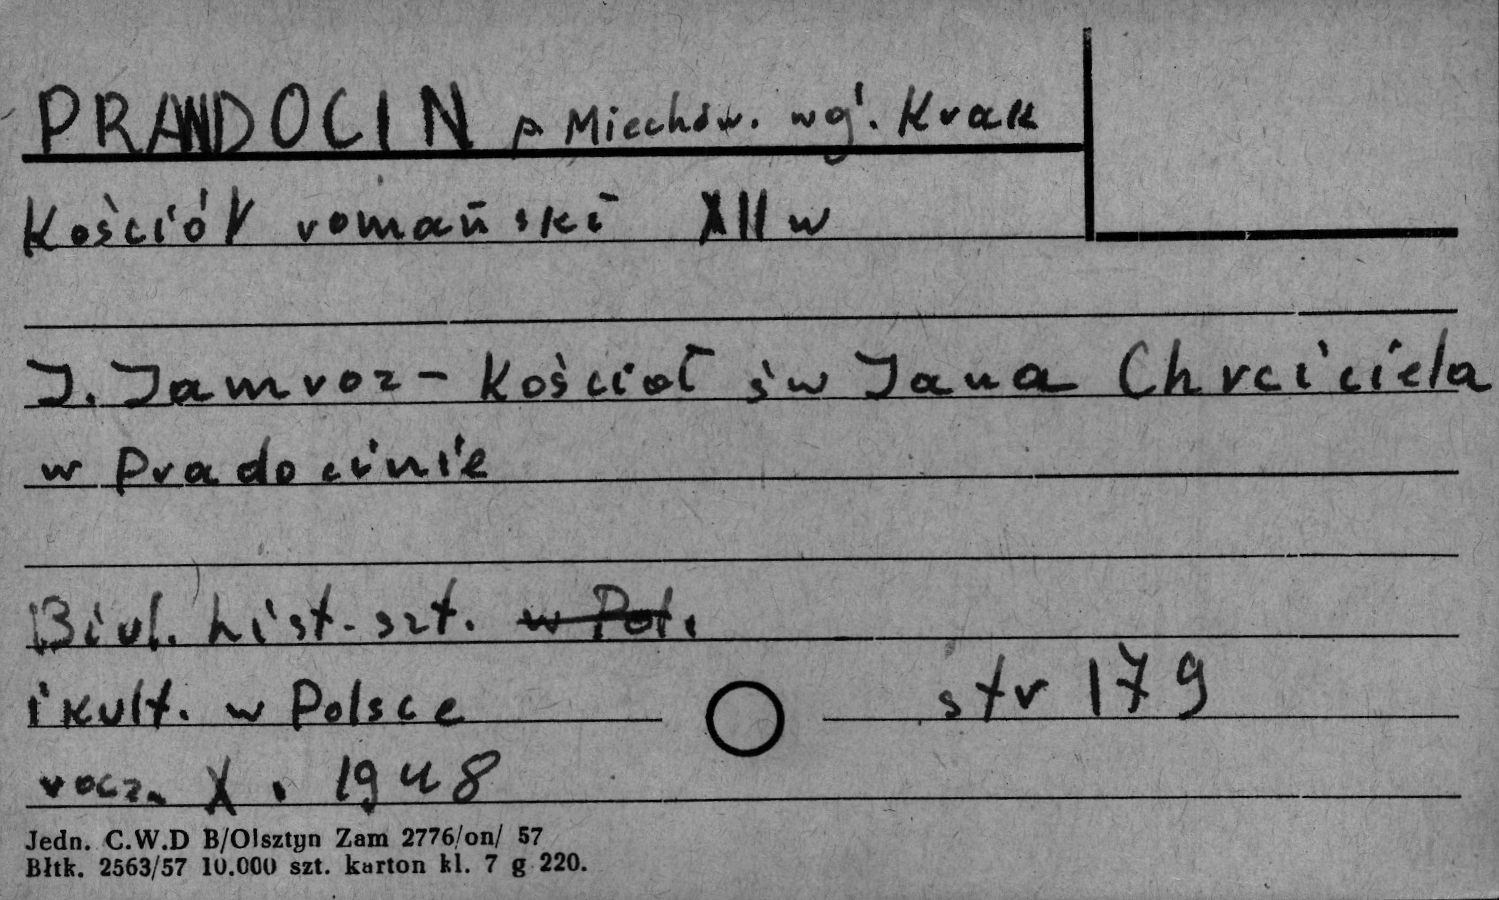 PRANDOCIN p Miechów. wg'. Krak
Kościół romański XII w
J. Jamroz - Kościoł św Jana Chrciciela
w Pradocinie
Biul. hist. szt. w Pol.
i kult. w Polsce str 179
rocz. X. 1948
Jedn. C.W.D B/Olsztyn Zam 2776/on/ 57
Błtk. 2563/57 10.000 szt. karton kl. 7 g 220.